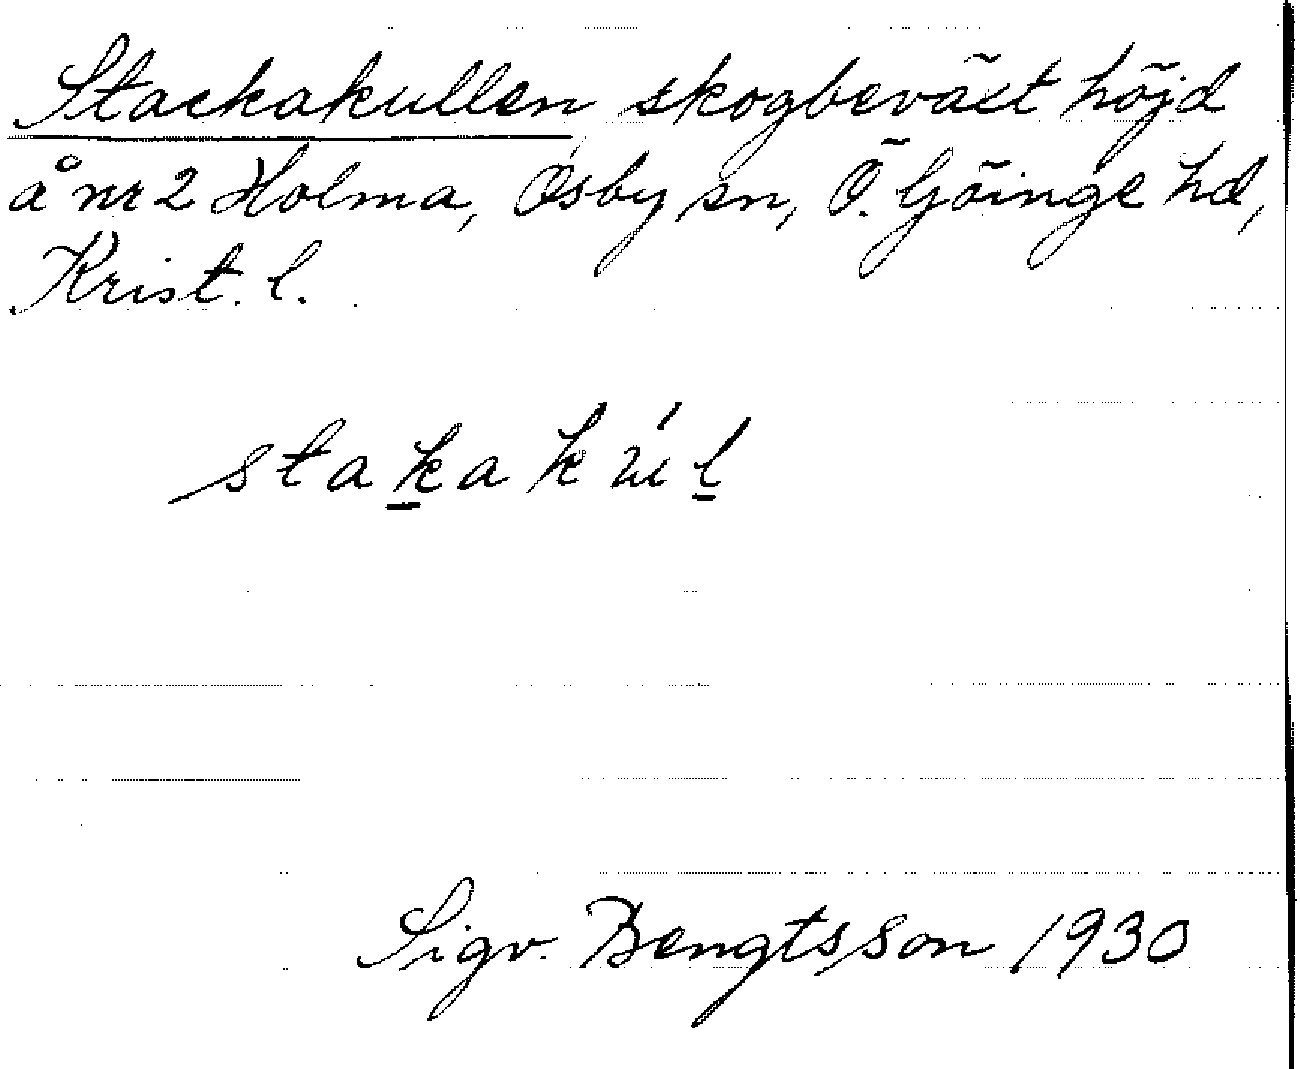 Stackakullen skogbeväxt höjd
å nr 2 Holma, Osby sn, Ö. Göinge hd,
Krist. l.
stak̲akúl̲
Sigv. Bengtsson 1930